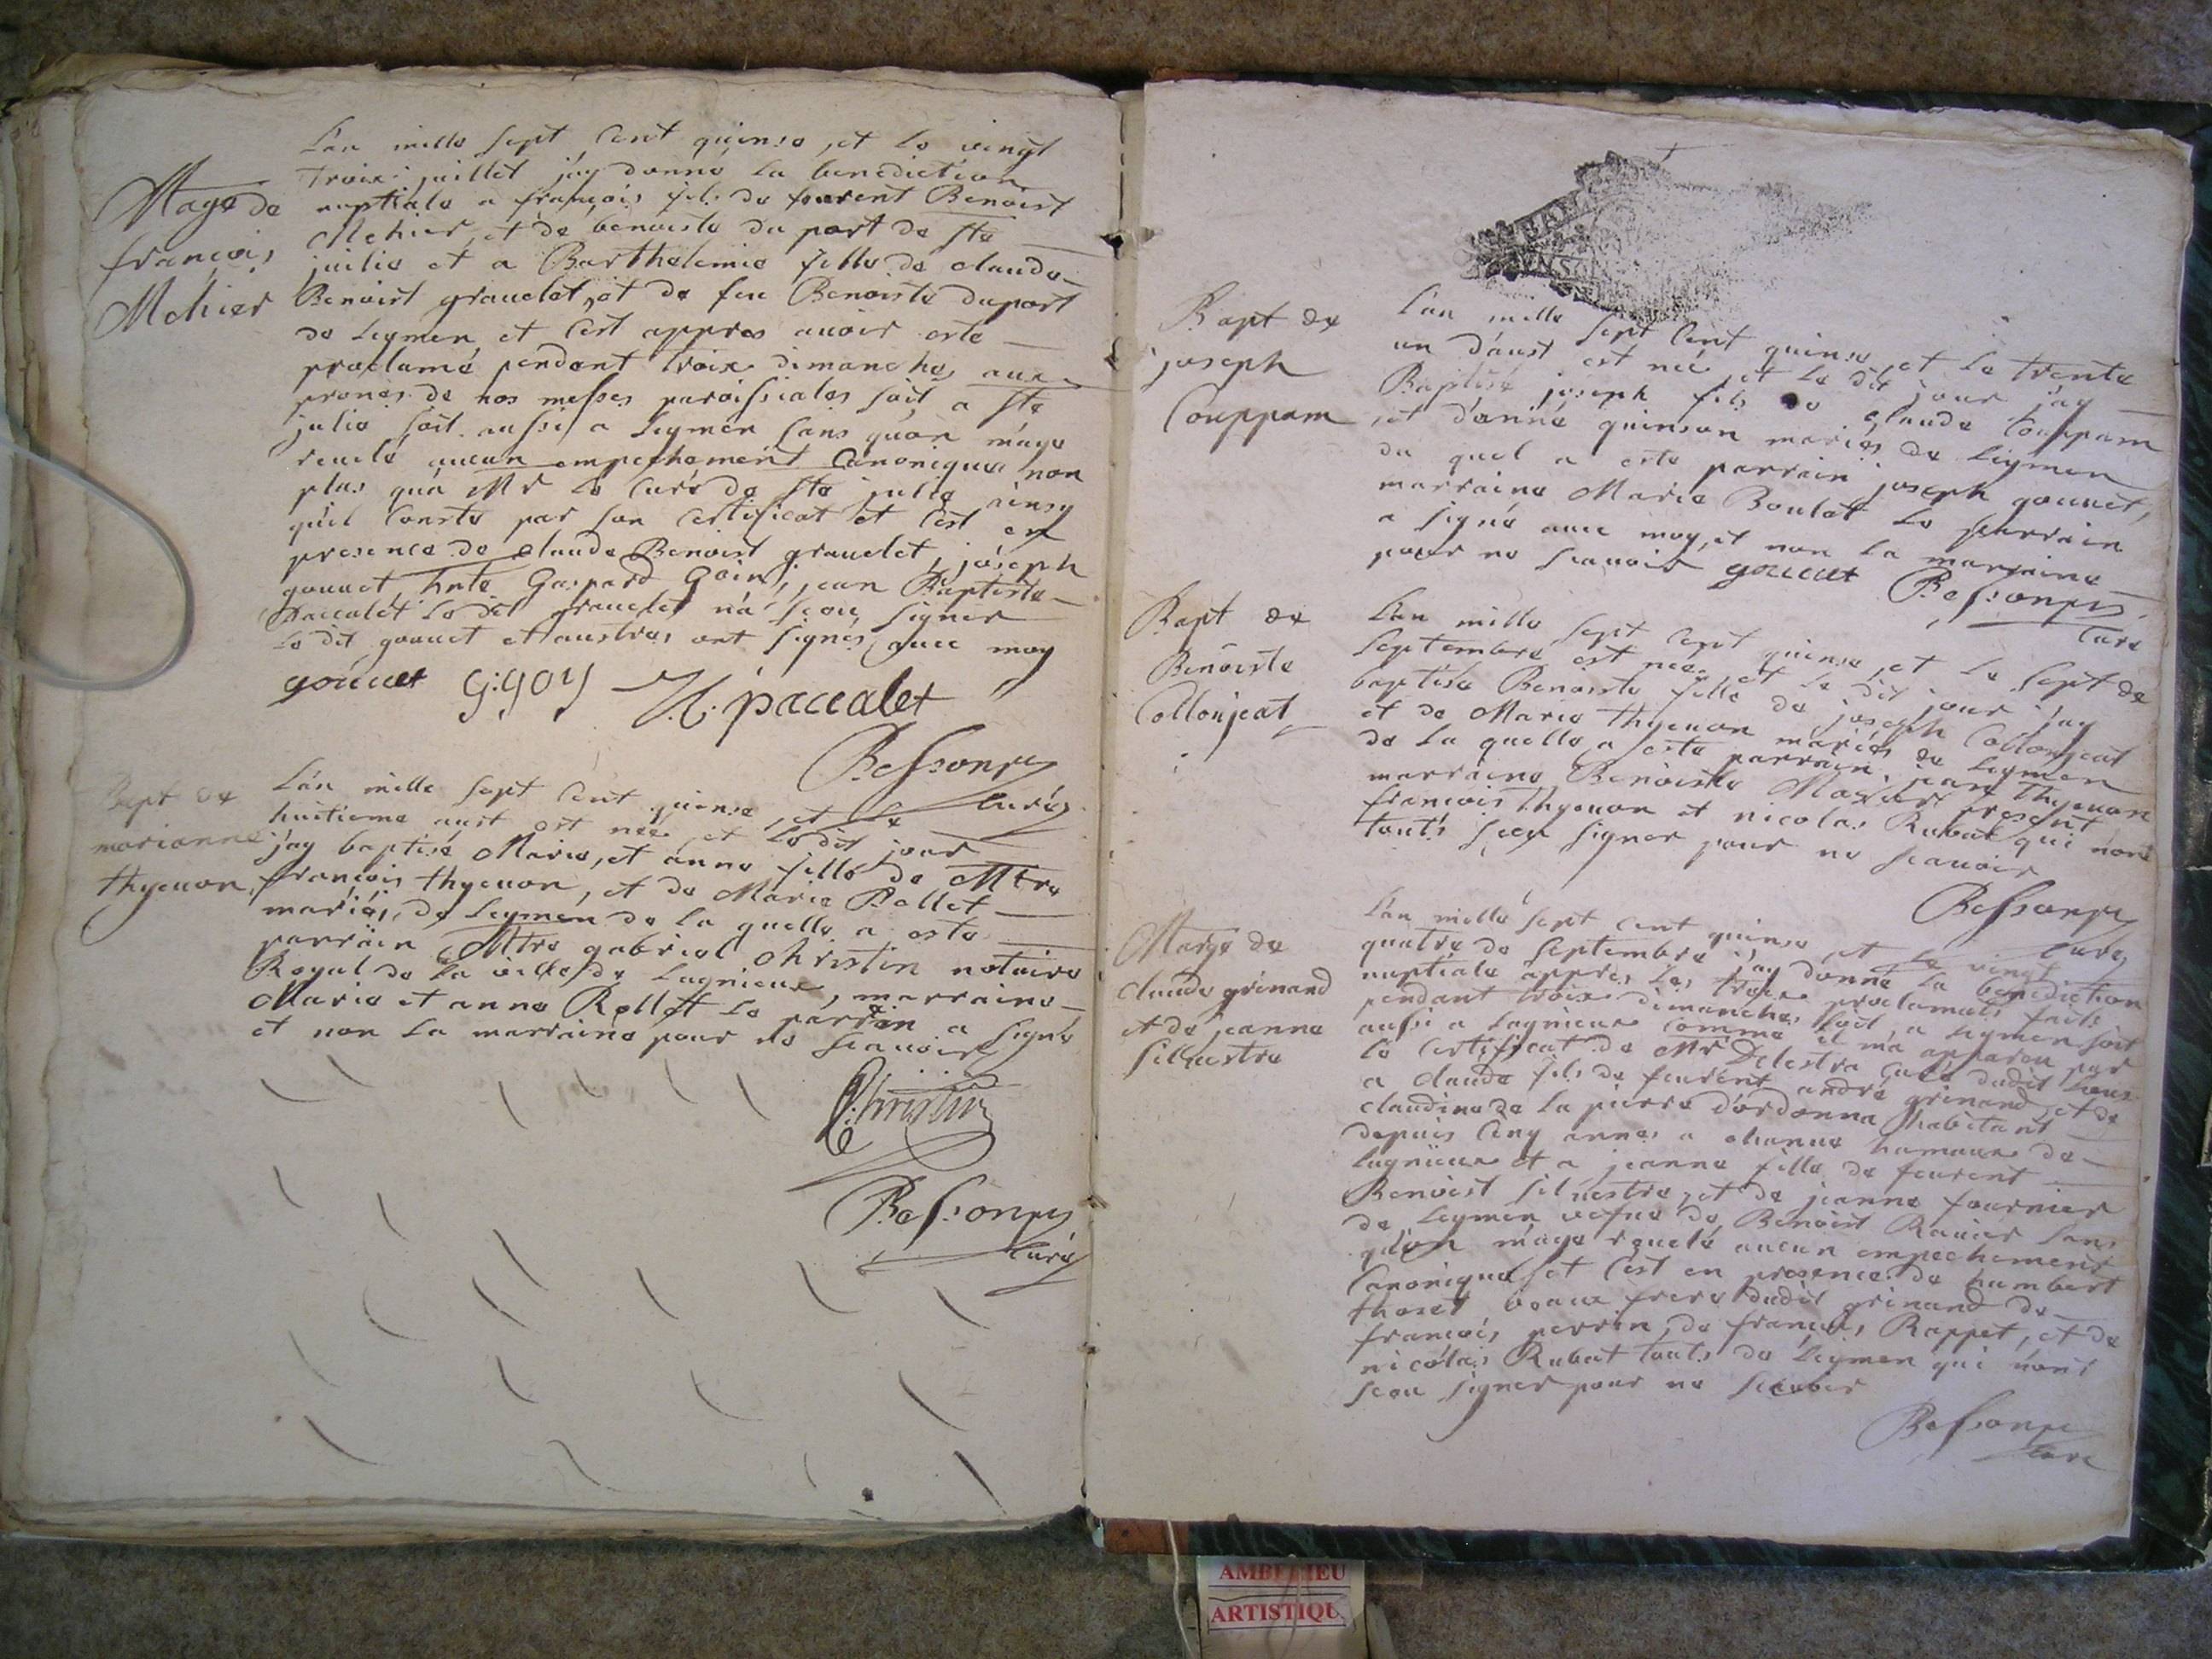 Mage de
françois
Mehier
L'an mille sept cent quinse, et le vingt
troix juillet j'ay donné la benediction
nuptiale a françois fils de feurent Benoist
Mehier, et de benoiste du port de ste
julie et a Barthelemie fille de claude
Benoist grauelet, et de feu Benoiste duport
de Leymen, et c'est appres auoir esté
proclamé pendant troix dimanches aux
prones de nos messes paroissiales soit, a ste
julie soit aussi a Leymen sans qu'on m'aye
reuelé aucun empechement canonique non
plus qu'a Mr le curé de ste julie ainsy
qu'il conste par son certificat et c'est en
presence de claude Benoist grauelet, joseph
gouuet hnte Gaspard Goin, jean Baptiste
Paccalet le dit grauelet n'a sceu signer
le dit gouuet et austres ont signés auec moy
gouuet G:goy paccalet
Bessonpe
curé
Bapt de
marianne
thyeuon
L'an mille sept cent quinse, et le
huitieme aust est née, et ledit jour
j'ay baptisé Marie, et anne fille de Mtre
françois thyeuon, et de Marie Rellet
mariés, de Leymen de la quelle a esté
parrain Mtre gabriel christin notaire
Royal de la ville de Lagnieux, marraine
Marie et anne Rellet le parrain a signé
et non la marraine pour ne scauoir
Christin
Bessonpe
curé
Bapt de
joseph
Couppam
L'an mille sept cent quinse, et le trente
un d'aust est né et le dit jour j'ay
Baptisé joseph fils de claude Couppam
et d'anne quinson mariés de Leymen
du quel a esté parrain joseph gouuet,
marraine Marie Boulat le parrain
a signé auec moy, et non la marraine
pour ne scauoir gouuet Bessonpe
curé
Bapt de
Benoiste
Collonjeat
L'an mille sept cent quinse, et le sept de
septembre est née, et le dit jour j'ay
baptisé Benoiste fille de joseph Collonjeat
et de Marie thyeuon mariés de Leymen
de la quelle a esté parrain jean thyeuon
marraine Benoiste present
françois thyeuon et nicolas Rubat qui n'ont
touts sceu signer pour ne scauoir
Bessonpe
curé
Marge de
claude grinand
et de jeanne
siluestre
L'an mille sept cent quinse et le vingt
quatre de septembre j'ay donné la benediction
nuptiale appres les troix proclamats faits
pendant troix dimanches soit, a Leymen soit
aussi a Lagnieux comme il m'a apparou par
le certificat de Mr Delestra curé dudit lieux
a claude fils de feurent andré grinand, et de
claudine de la pierre d'ordonna habitant
depuis cinq annes a chanue hameaux de
Lagnieux et a jeanne fille de feurent
Benoist siluestre, et de jeanne fournier
de Leymen vefue de Benoist Rauier sans
qu'on m'aye reuelé aucun empechement
Canonique, et c'est en presence de humbert
thoset beaux frere dudit grinand de
françois perrin, de françois Rappet, et de
nicolas Rubat touts de Leymen qui n'ont
sceu signer pour ne scauoir
Bessonpe
curé
AMBERIEU
ARTISTIQU